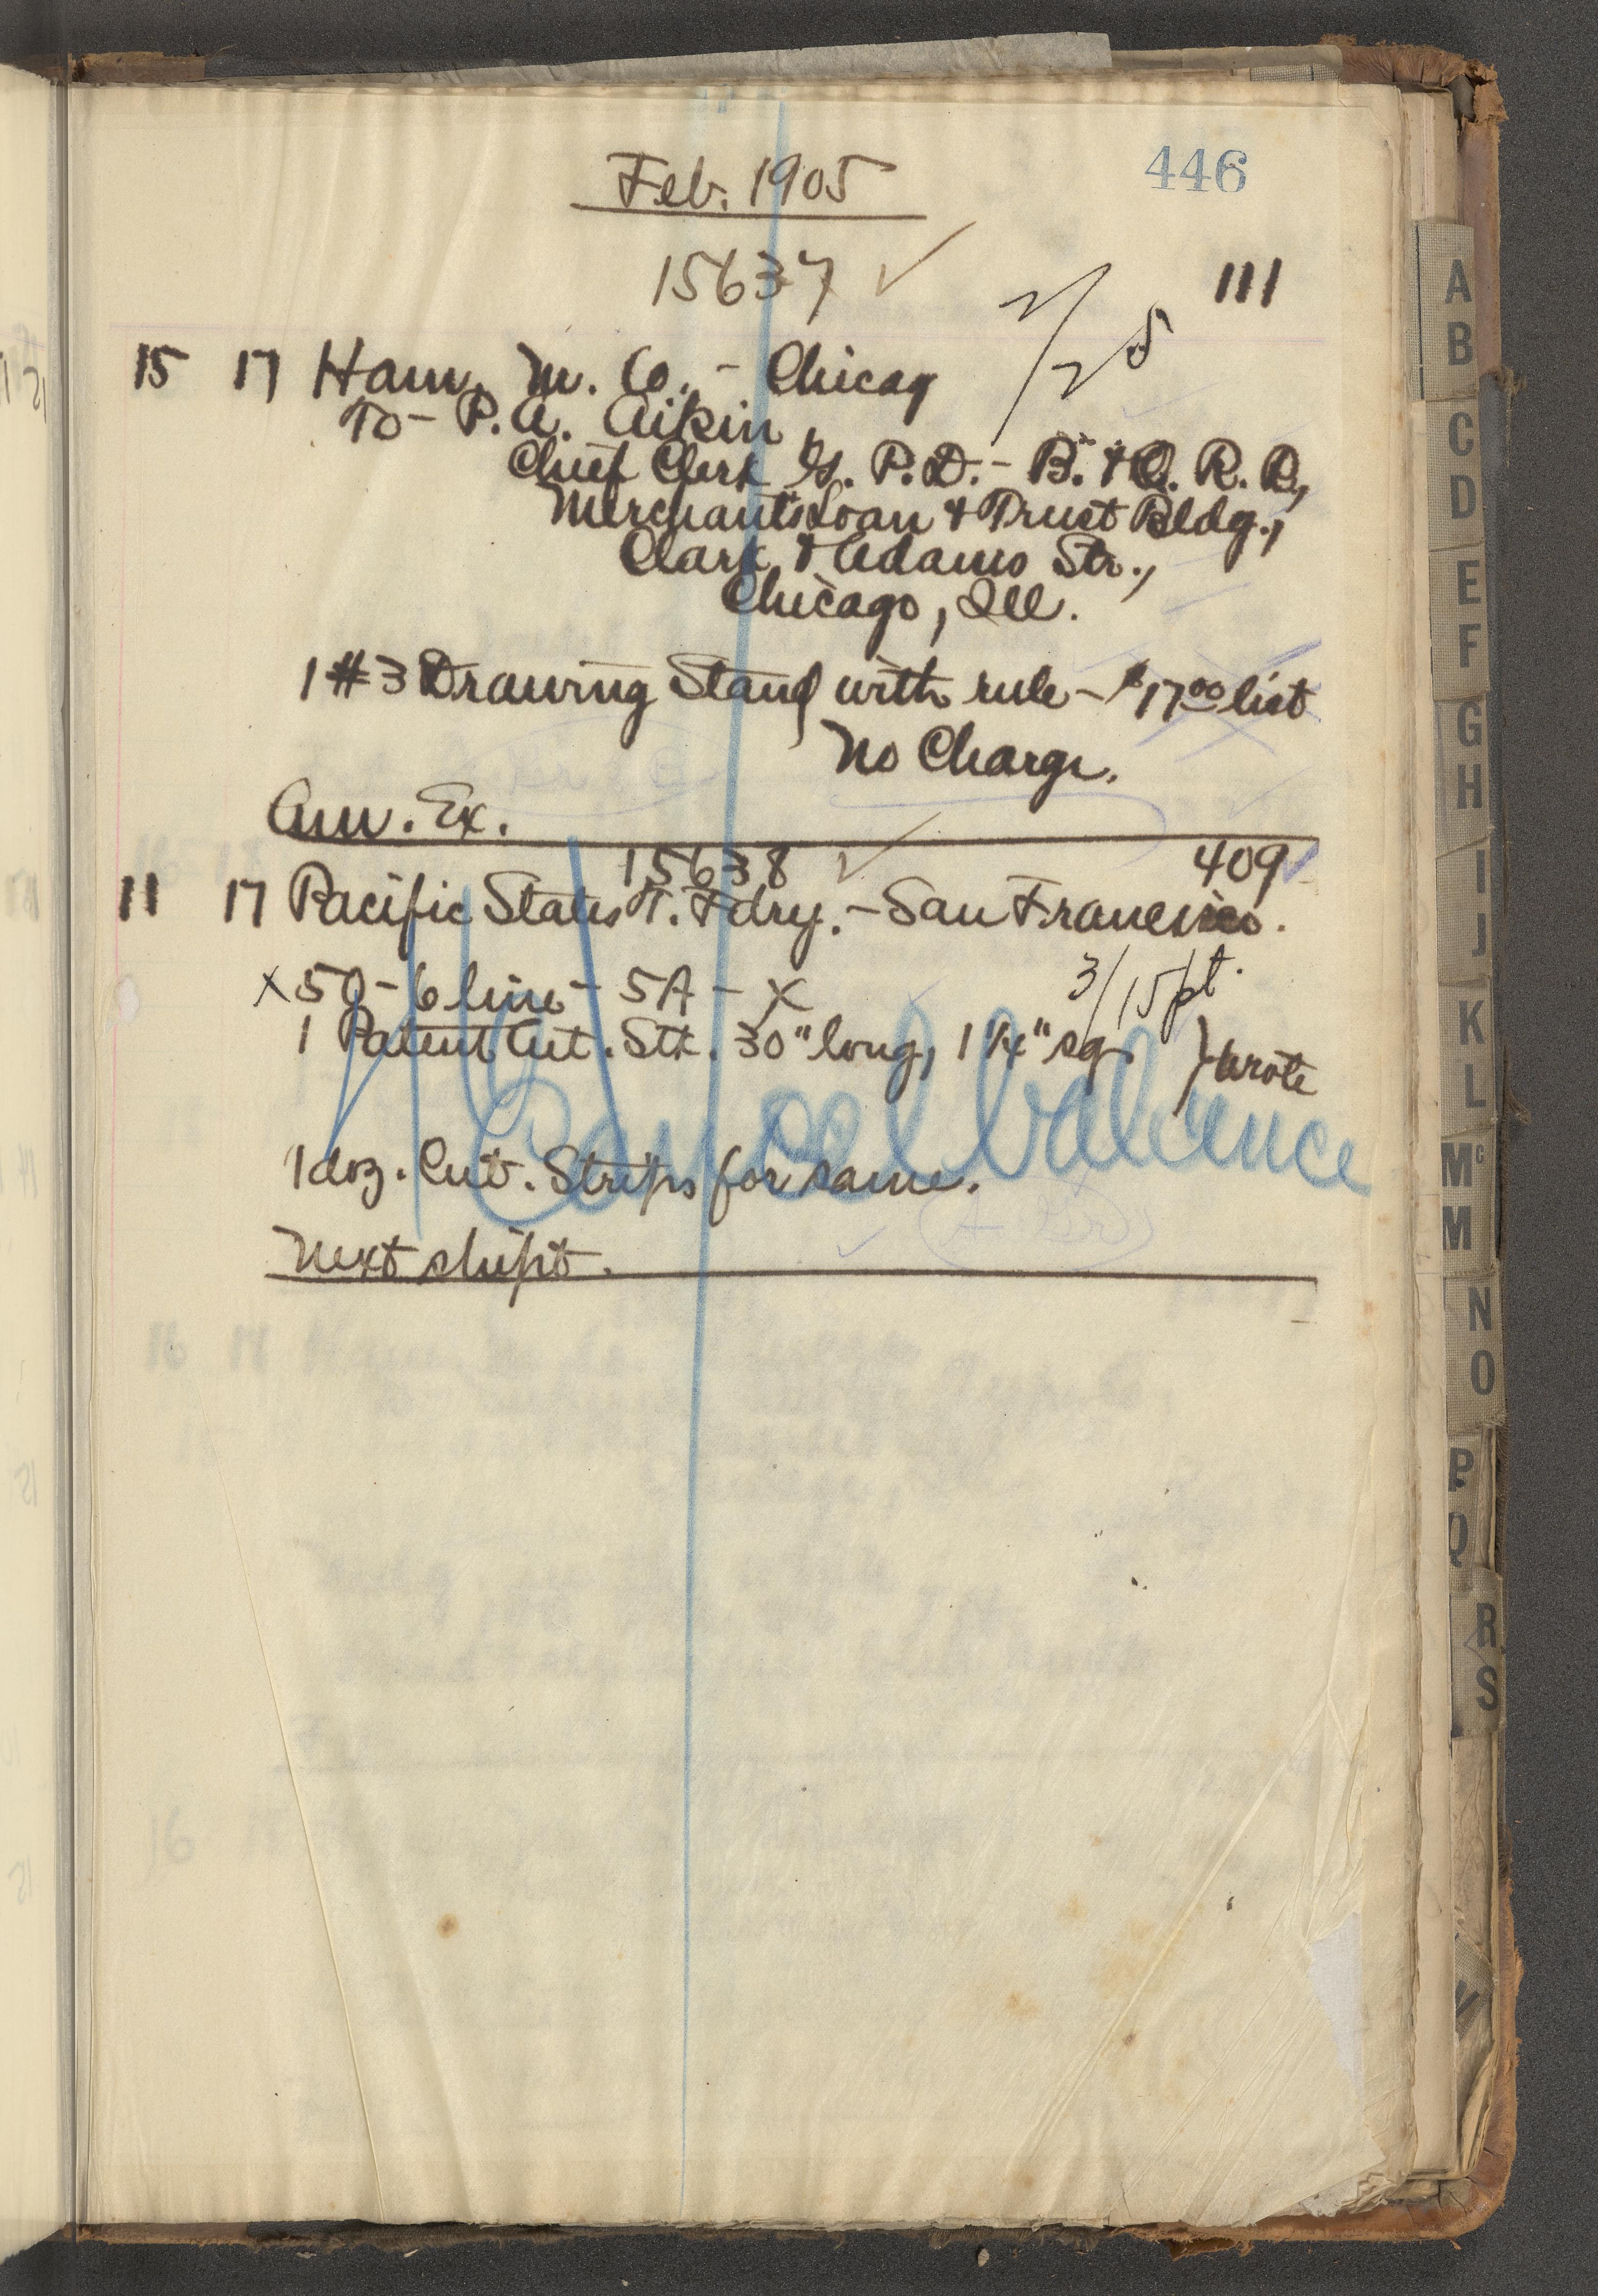 446
Feb. 1905
15637 ✓
111
2/25
15 17 Ham. M. Co. - Chicag
To - P. A. Aikin
Chief Clerk G. P. D. - B. & O. R. R.,
Merchants Loan & Trust Bldg.,
Clark & Adams Str.,
Chicago, Ill.
1 #3 Drawing Stand with rule - $17.00 list
No Charge.
Am. Ex.
15638 ✓ 409
11 17 Pacific States T. Fdry. - San Francisco.
x 50 - 6 line - 5A - x
3/15 pt.
1 Patent Cut. Stk. 30" long, 1 1/4" sq. } wrote
Cancel balance
1 doz. Cut. Strips for same.
Next shipt.
A
B
C
D
E
F
G
H
I
J
K
L
Mc
M
N
O
P
Q
R
S